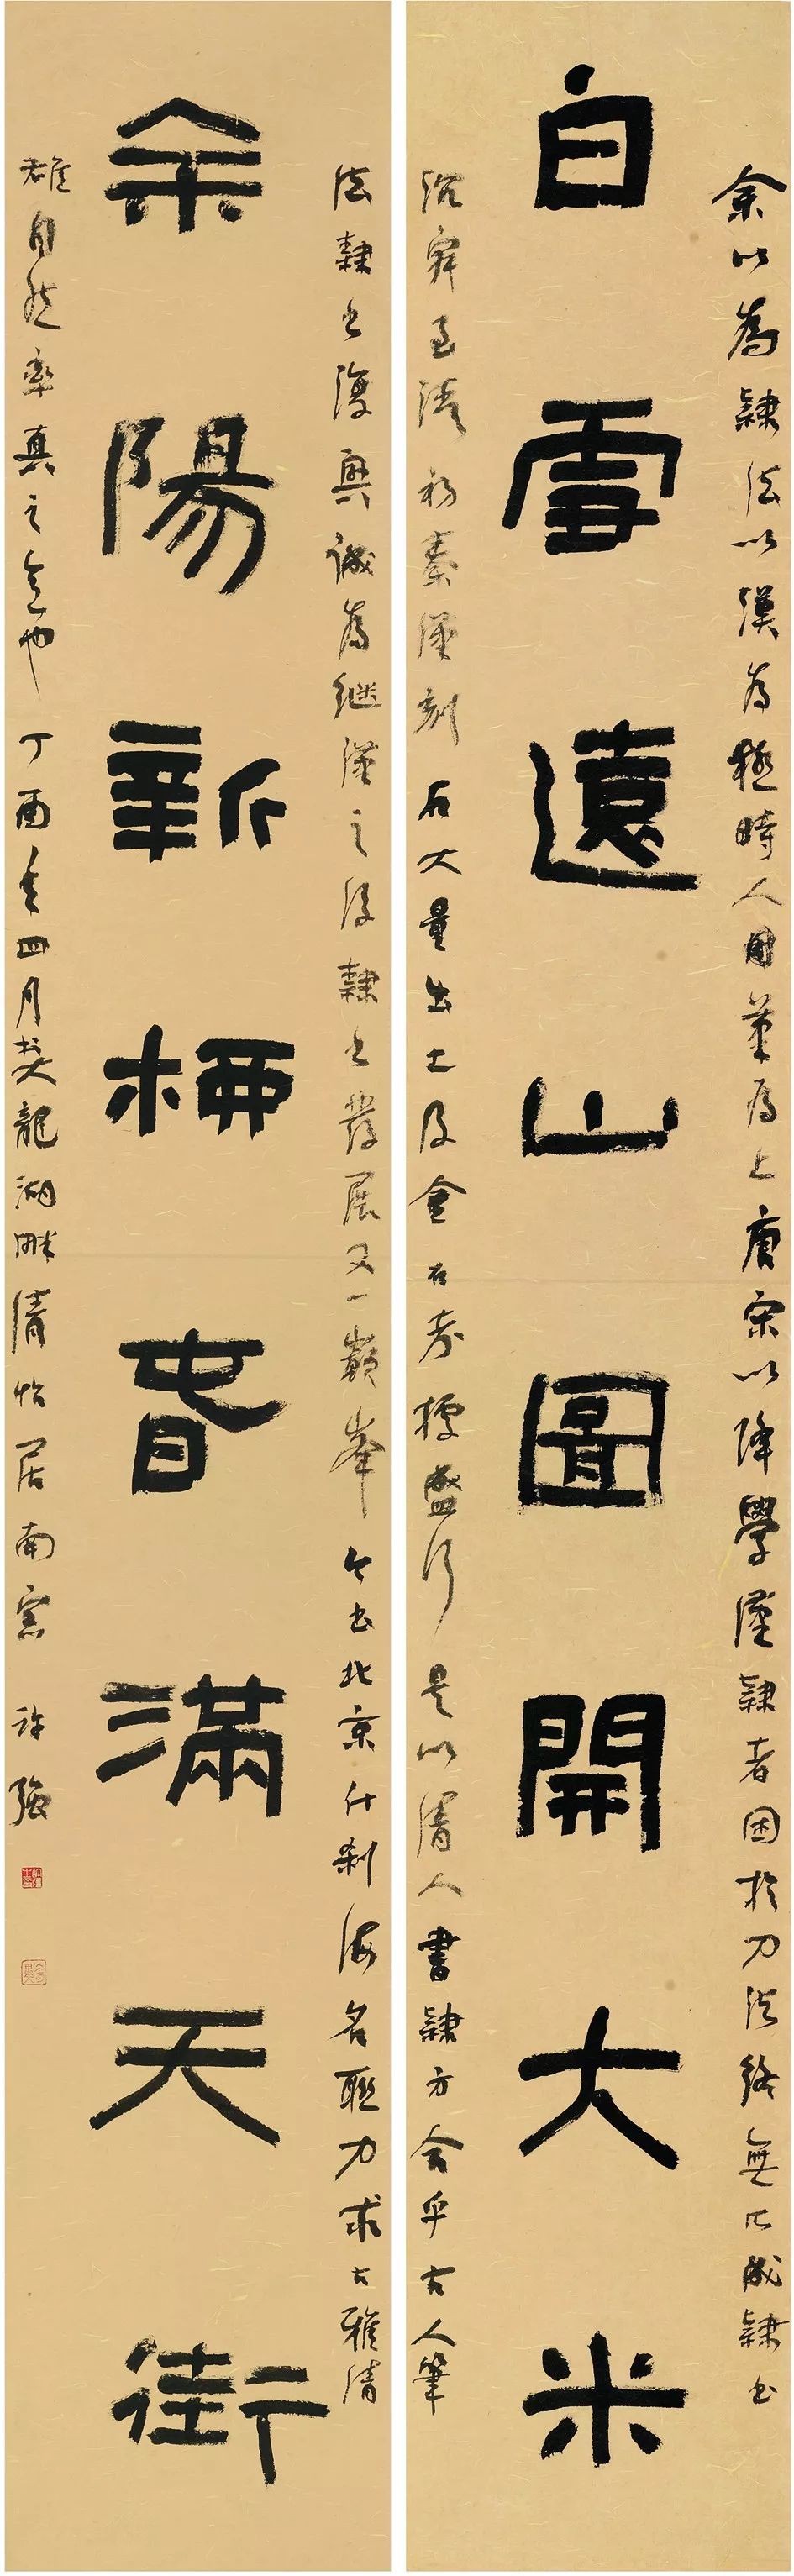 余以為隸法以漢為極時人用筆為上唐宋以降學漢隸者困於刀法終無所成隸書
白雪遠山圖開大米
至清初秦漢刻石大量出土及金石考據盛行是以清人書隸方合乎古人筆
法隸書復興誠為繼漢之後隸書發展又一巔峯今書北京什刹海名聯力求古雅清
余陽新柳春滿天街
雄自然率真之意也丁酉年四月於龍湖畔清怡居南窗 許強